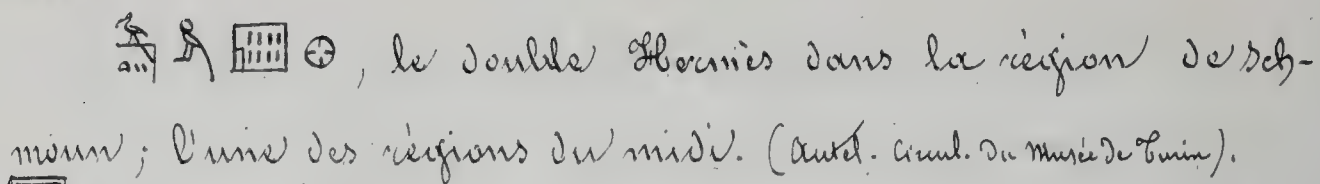 , le double Hermès dans la région de Sch-
moun ; l'une des régions du midi. (Autel. Circul. du Musée de Turin).